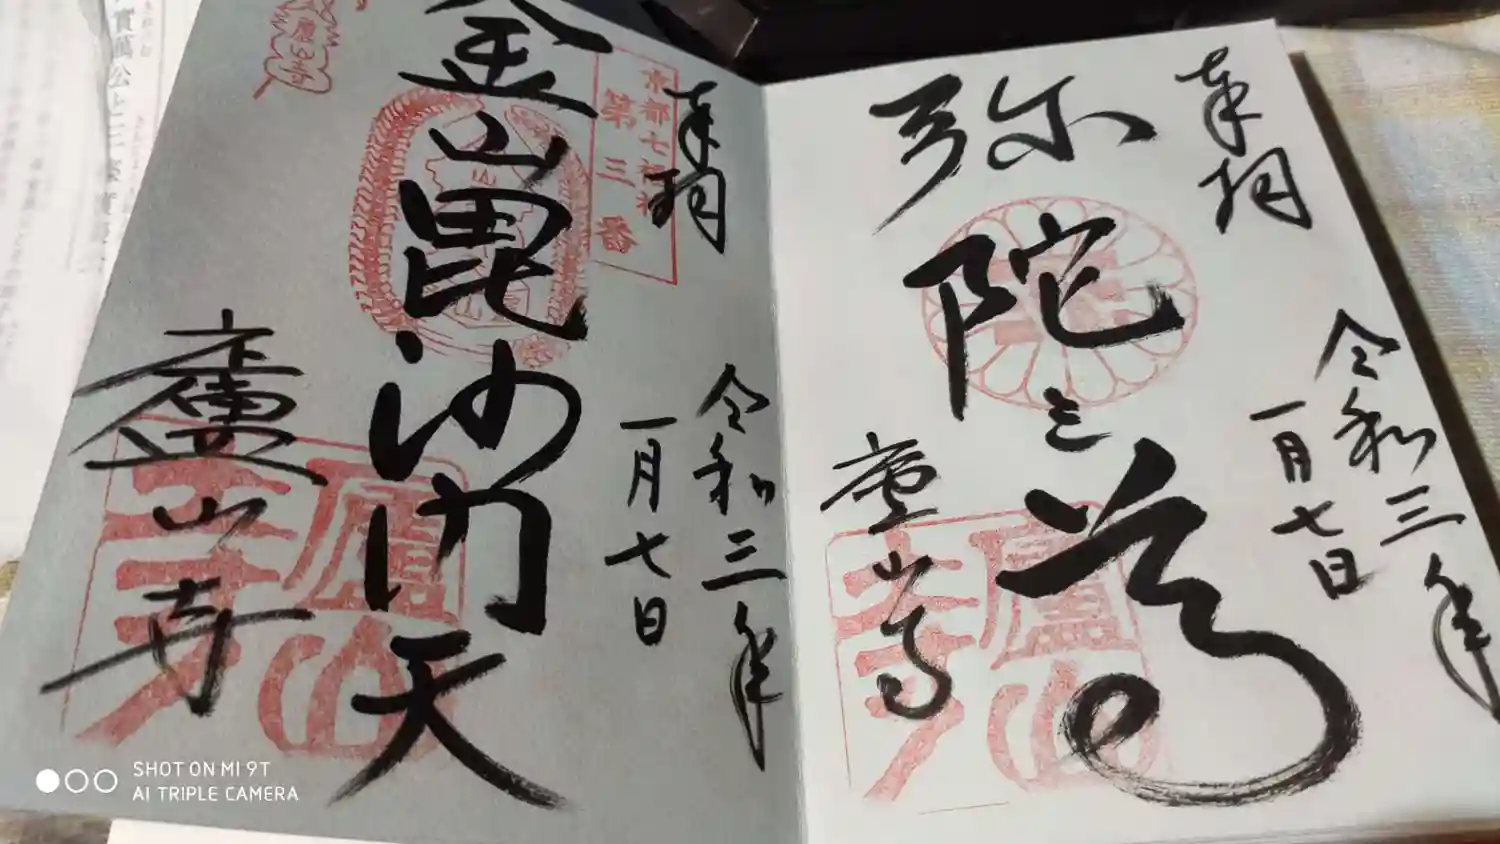 奉拝
令和三年
一月七日
弥陀三尊
廬山寺
廬山寺
奉拝
京都七福神
第三番
令和三年
一月七日
金山毘沙門天
廬山寺
廬山寺
SHOT ON MI 9T
AI TRIPLE CAMERA